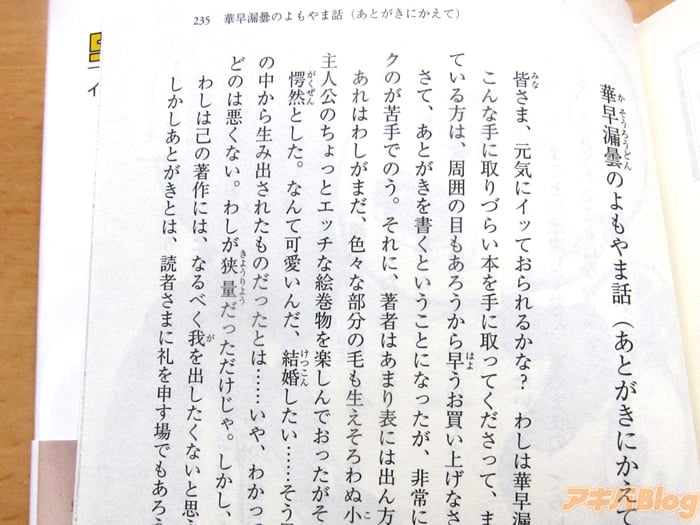 235 華早漏曇のよもやま話（あとがきにかえて）
華早漏曇のよもやま話（あとがきにかえ
かそうろうどん
皆さま、元気にイッておられるかな？　わしは華早漏
みな
こんな手に取りづらい本を手に取ってくださって、ま
ている方は、周囲の目もあろうから早うお買い上げなさ
はよ
さて、あとがきを書くということになったが、非常に
クのが苦手でのう。それに、著者はあまり表には出ん方
あれはわしがまだ、色々な部分の毛も生えそろわぬ小
こ
主人公のちょっとエッチな絵巻物を楽しんでおったがそ
愕然とした。なんて可愛いんだ、結婚したい……そう
がくぜん
けつこん
の中から生み出されたものだったとは……いや、わかって
どのは悪くない。わしが狭量だっただけじゃ。しかし、
きようりよう
わしは己の著作には、なるべく我を出したくないと思
が
しかしあとがきとは、読者さまに礼を申す場でもあろ
イ
アキバBlog